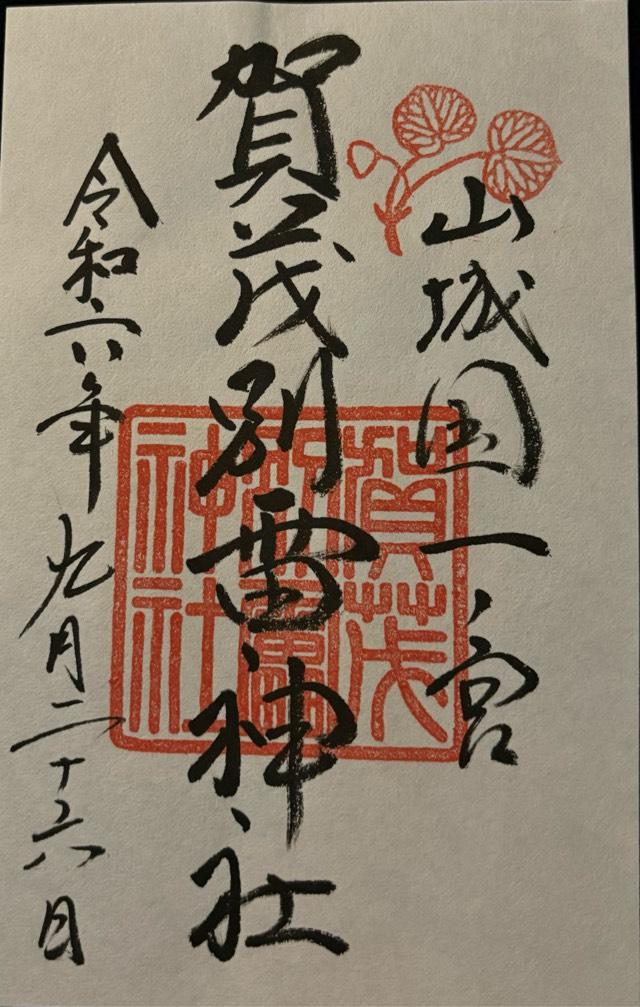 山城国一宮
賀茂別雷神社
賀茂別雷神社
令和六年九月二十六日